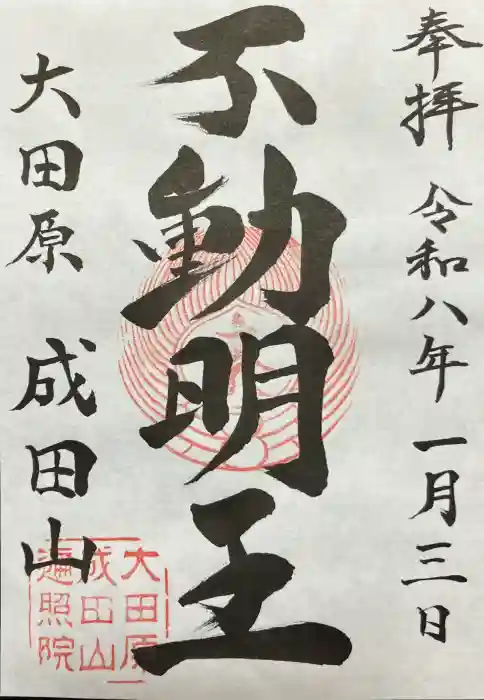 奉拝 令和八年一月三日
不動明王
大田原 成田山
大田原
成田山
遍照院